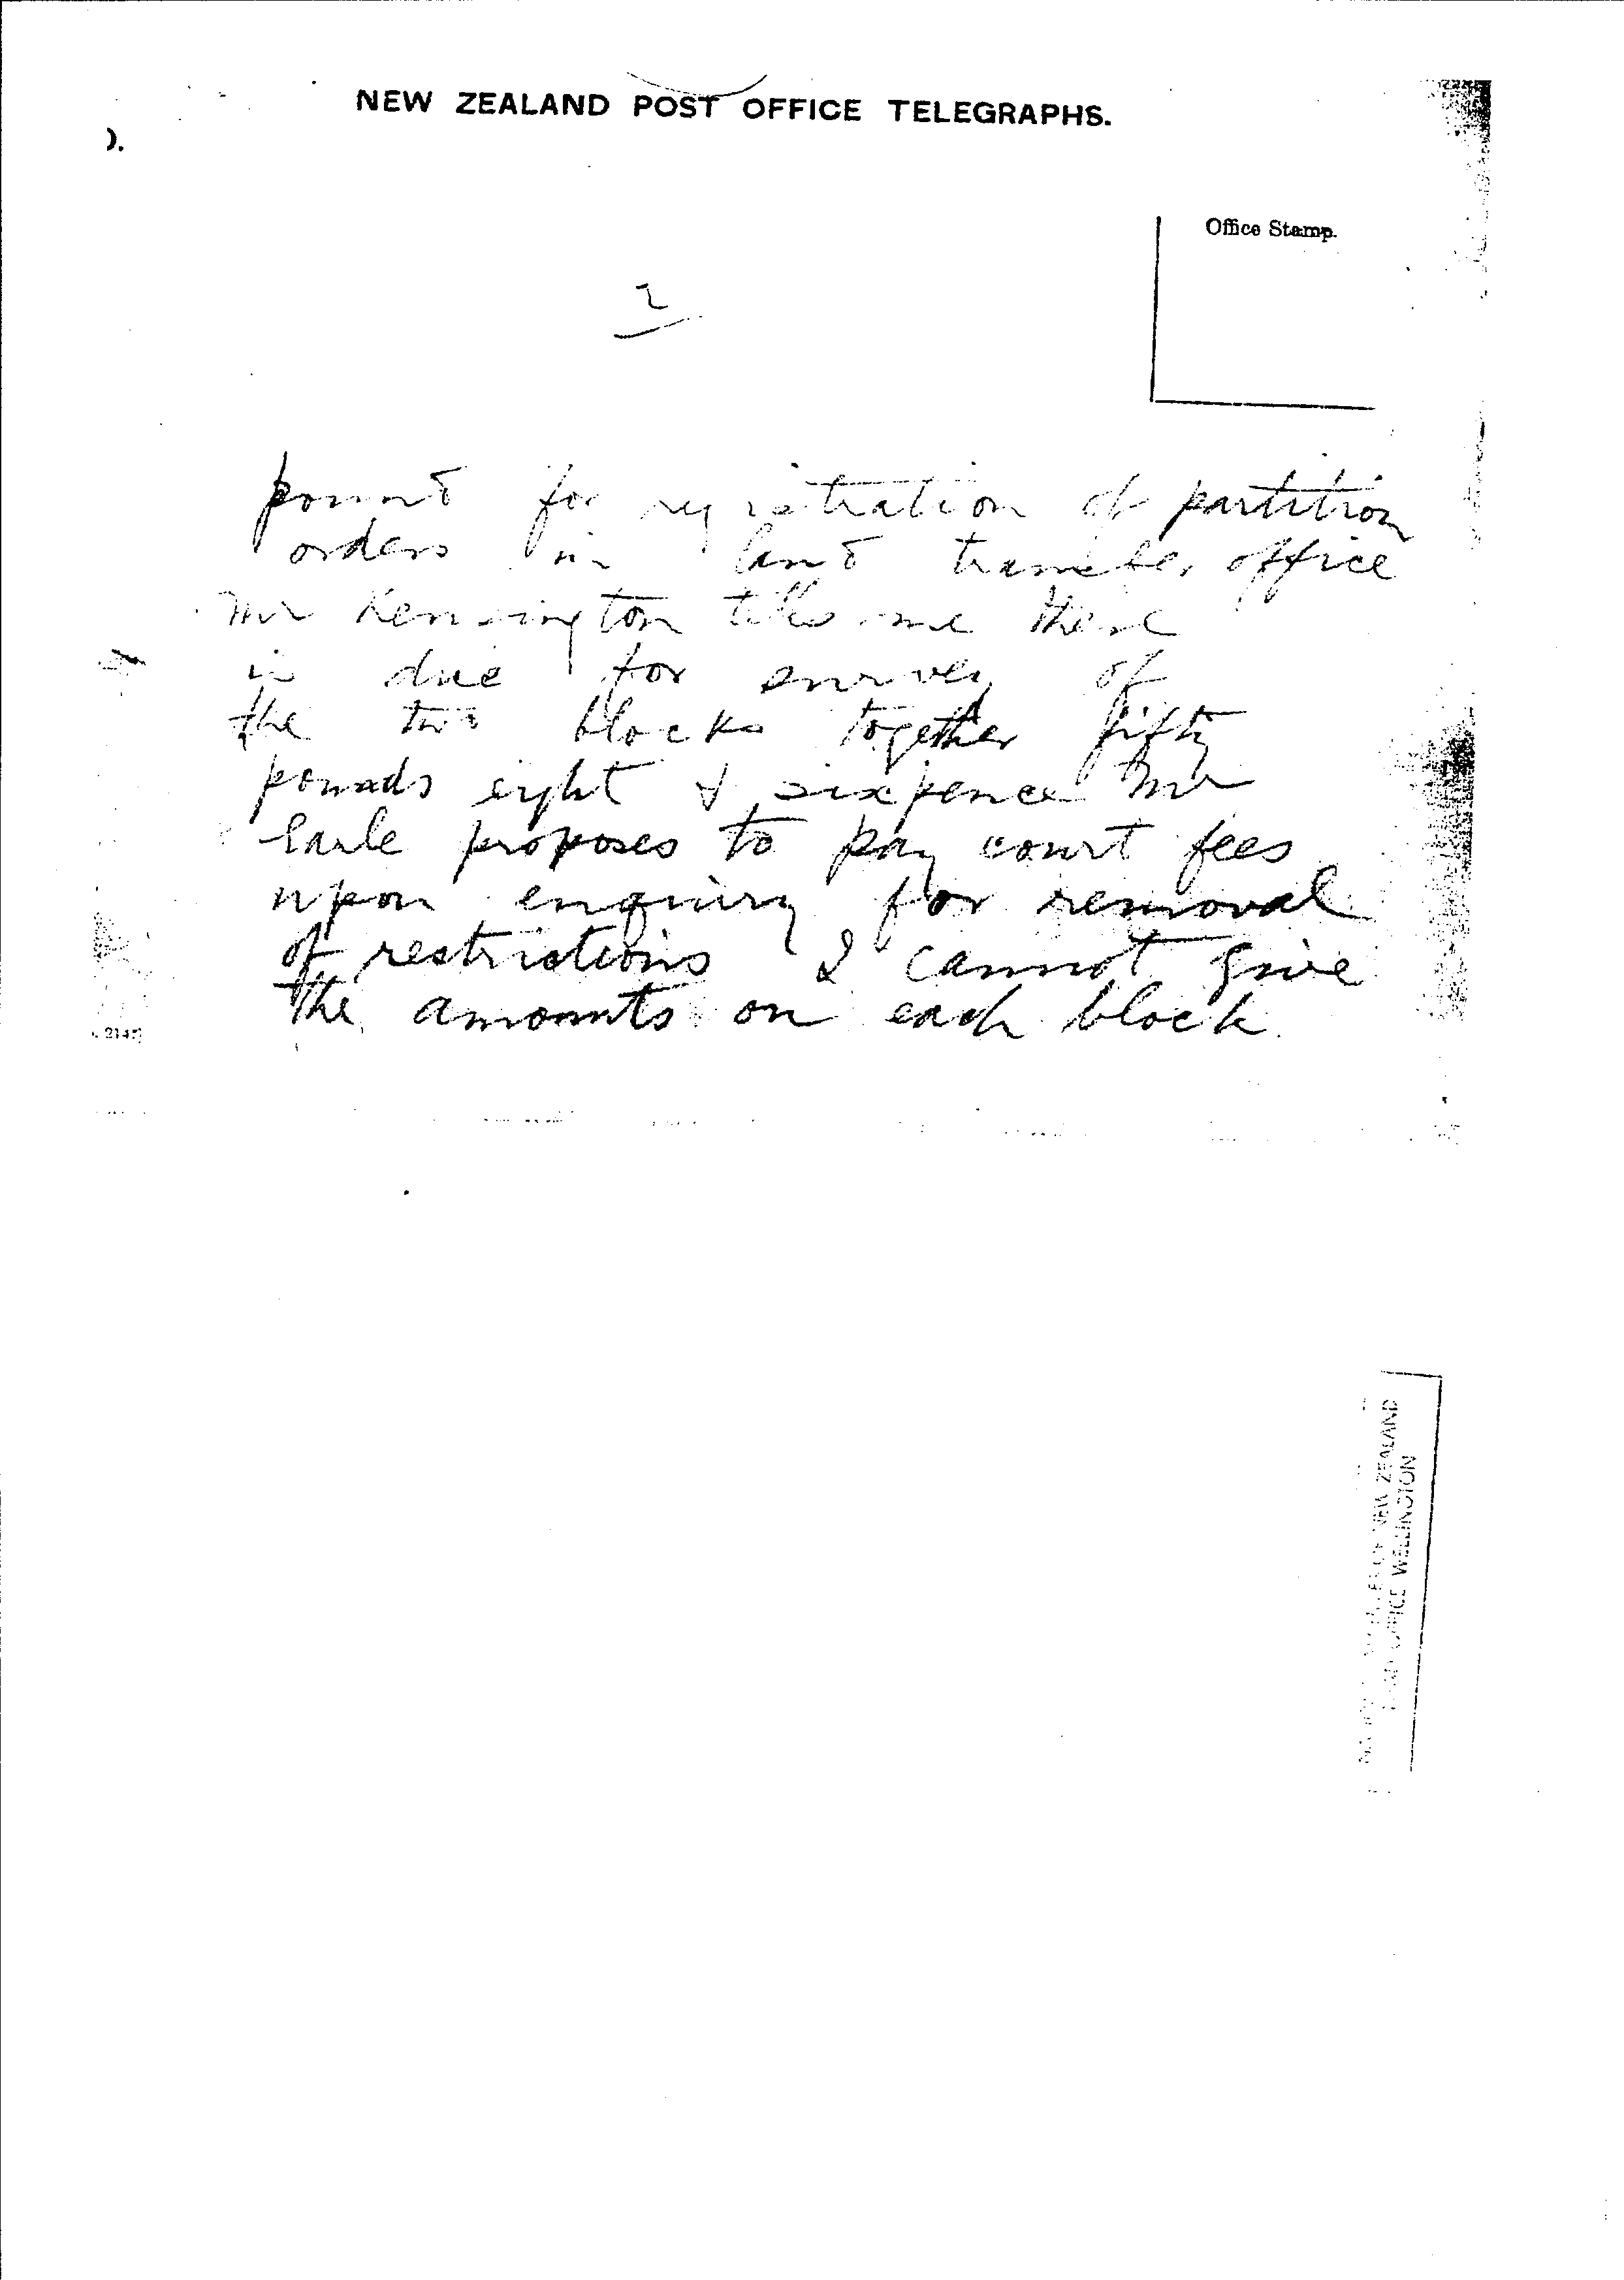 NEW ZEALAND POST OFFICE TELEGRAPHS.
).
Office Stamp.
2
pound for registration of partition
orders in land transfer office
Mr Kensington tells me there
is due for survey of
the two blocks together fifty
pounds eight & sixpence Mr
Earle proposes to pay court fees
upon enquiry for removal
of restrictions I cannot give
the amounts on each block
NEW ZEALAND
OFFICE WELLINGTON